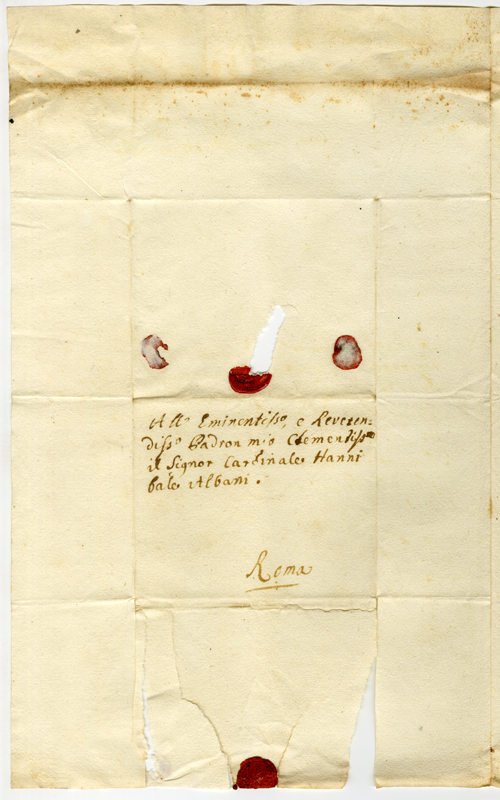 All'o Eminentisso, e Reveren=
disso Padron mio Clementisso
il Signor Cardinale Hanni
bale Albani.
Roma